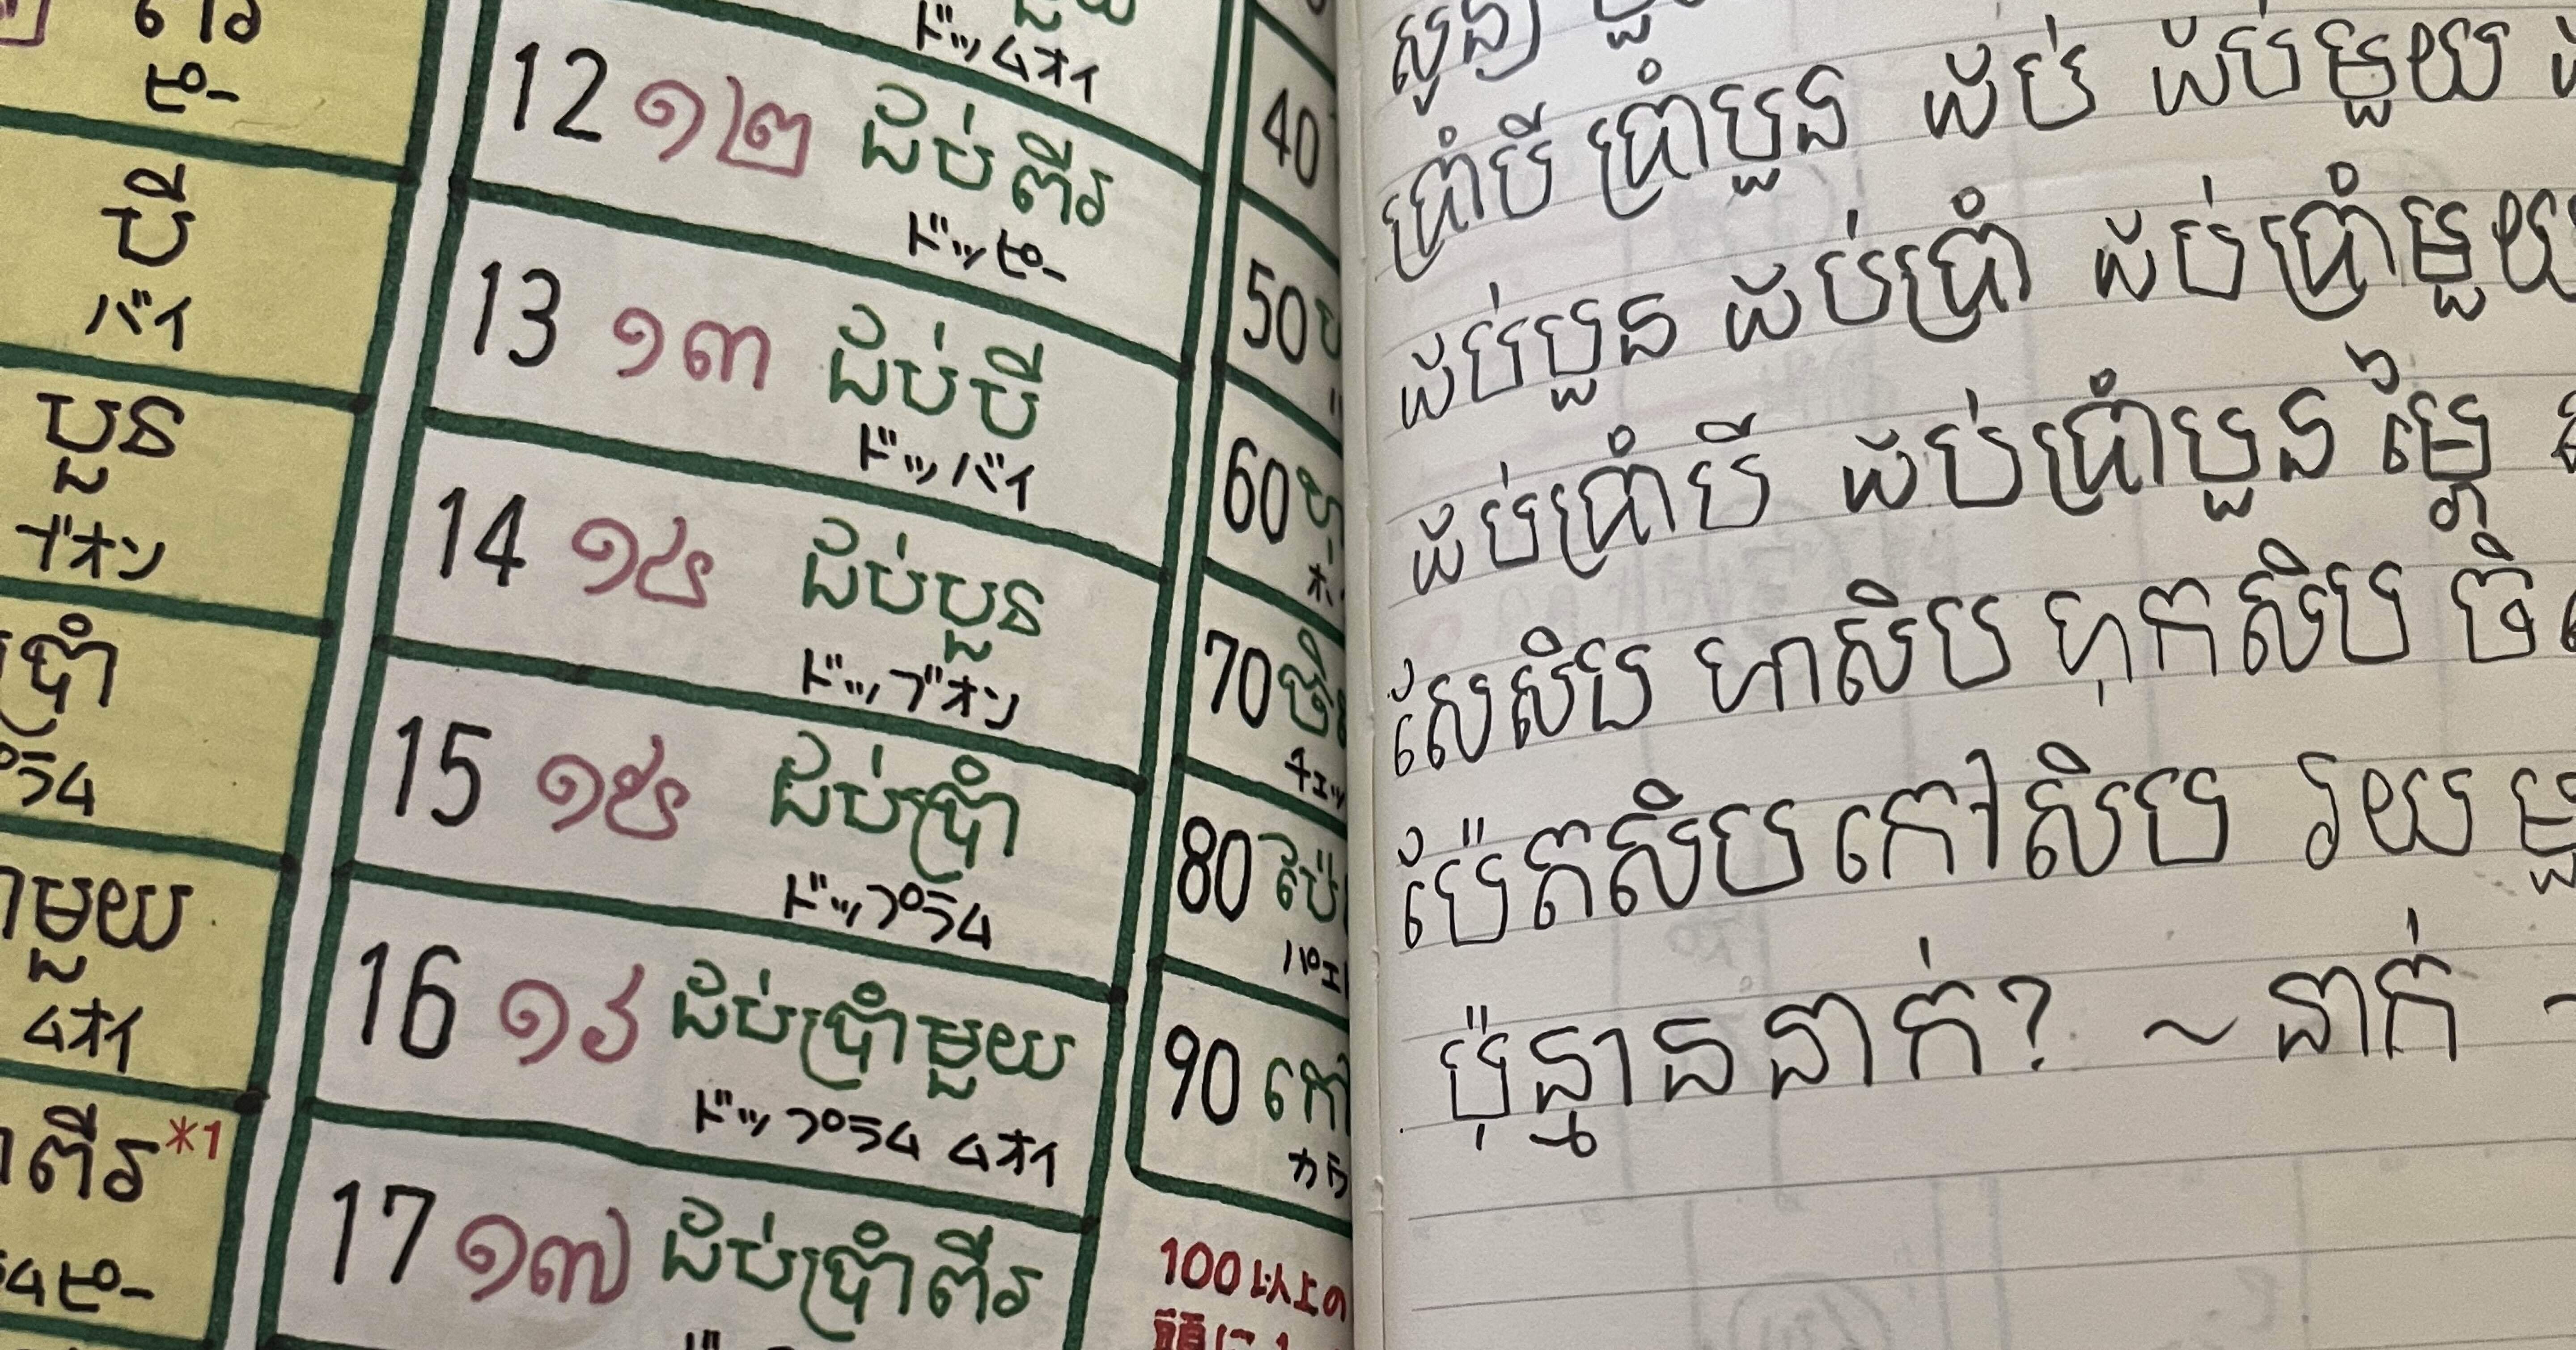 ពីរ
ピー
បី
バイ
បួន
ブオン
ប្រាំ
プラム
មួយ
ムオイ
ពីរ *1
ムピー
ドッムオイ
12 ១២ ដប់ពីរ
ドッピー
13 ១៣ ដប់បី
ドッバイ
14 ១៤ ដប់បួន
ドッブオン
15 ១៥ ដប់ប្រាំ
ドップラム
16 ១៦ ដប់ប្រាំមួយ
ドップラム ムオイ
17 ១៧ ដប់ប្រាំពីរ
40
50
60
70 ចិ
チェッ
80 ប៉ែ
パエ
90 កៅ
カウ
100以上の
頭に
សូន្យ
ប្រាំបី ប្រាំបួន ដប់ ដប់មួយ
ដប់បួន ដប់ប្រាំ ដប់ប្រាំមួយ
ដប់ប្រាំបី ដប់ប្រាំបួន ម្ភៃ
សែសិប ហាសិប ហុកសិប ចិ
ប៉ែតសិប កៅសិប រយ
ប៉ុន្មាននាក់? ~ នាក់